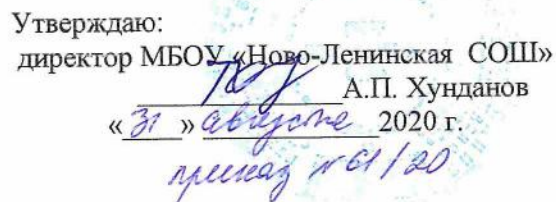 Утверждаю:
директор МБОУ «Ново-Ленинская СОШ»
А.П. Хунданов
«31» августа 2020 г.
приказ №61/20